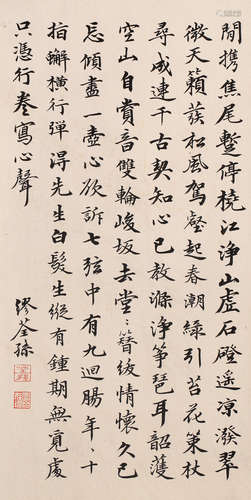 閒攜焦尾暫停橈江淨山虛石磴遙涼潑翠
微天籟蓑松風駕壑起春潮綠引苔花策杖
尋成連千古契知心已教滌淨箏琶耳韶濩
空山自賞音雙輪峻坂去堂堂簪紱情懷久已
忘傾盡一壺心欲訴七弦中有九迴腸年年十
指獬橫行彈得先生白髮生縱有鍾期無覓處
只憑行卷寫心聲
繆荃孫